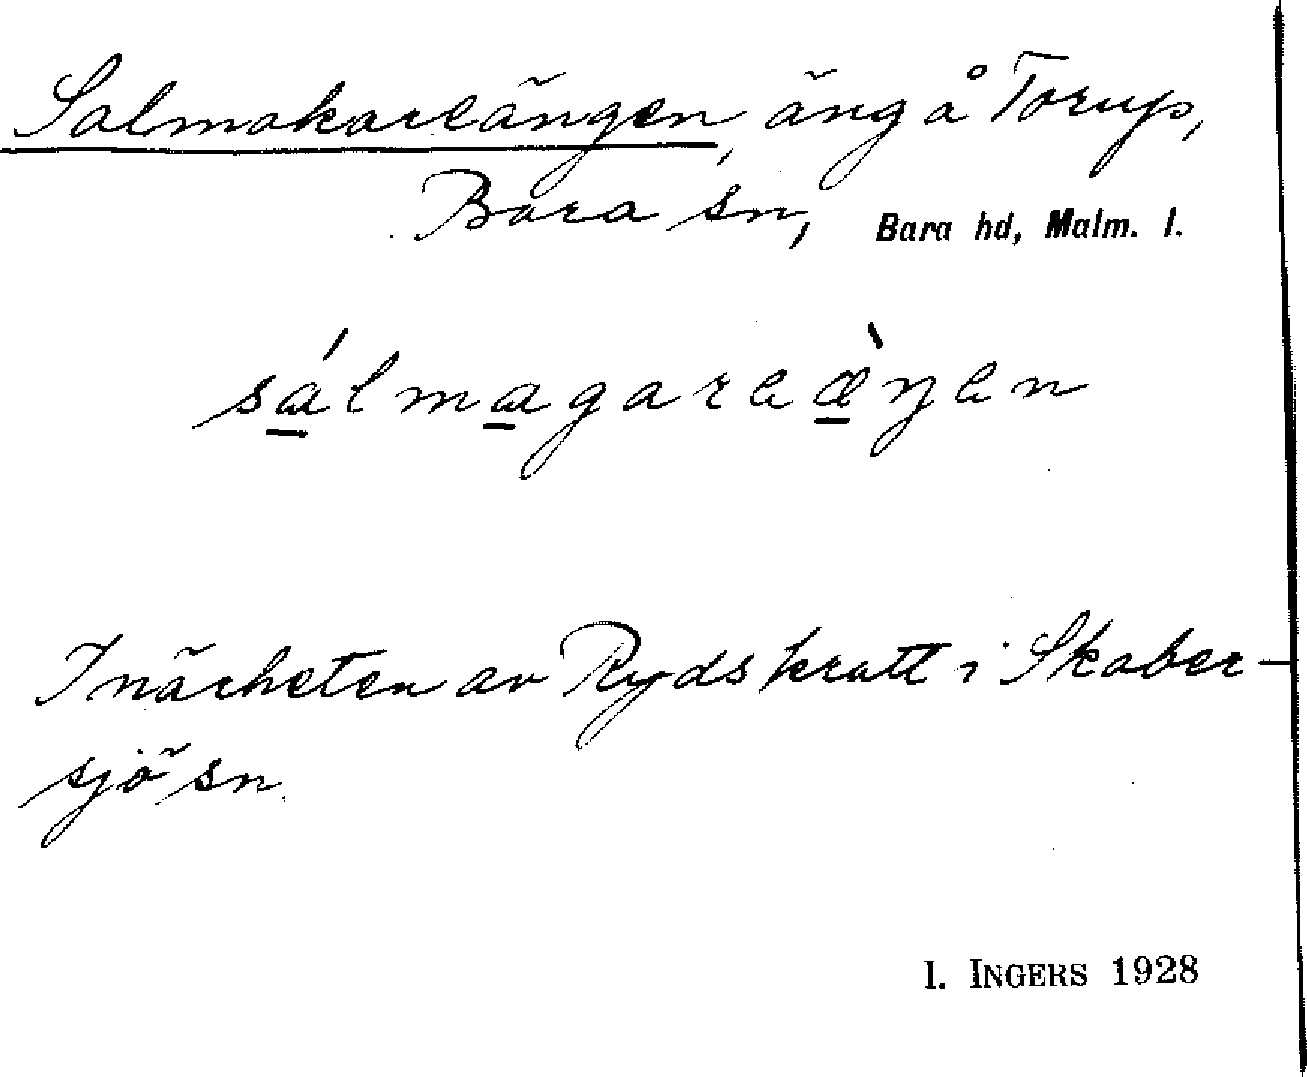 Salmakareängen, äng å Torup,
Bara sn, Bara hd, Malm. l.
sálmagareæ̀ŋen
I närheten av Rydskratt i Skaber-
sjö sn.
I. INGERS 1928